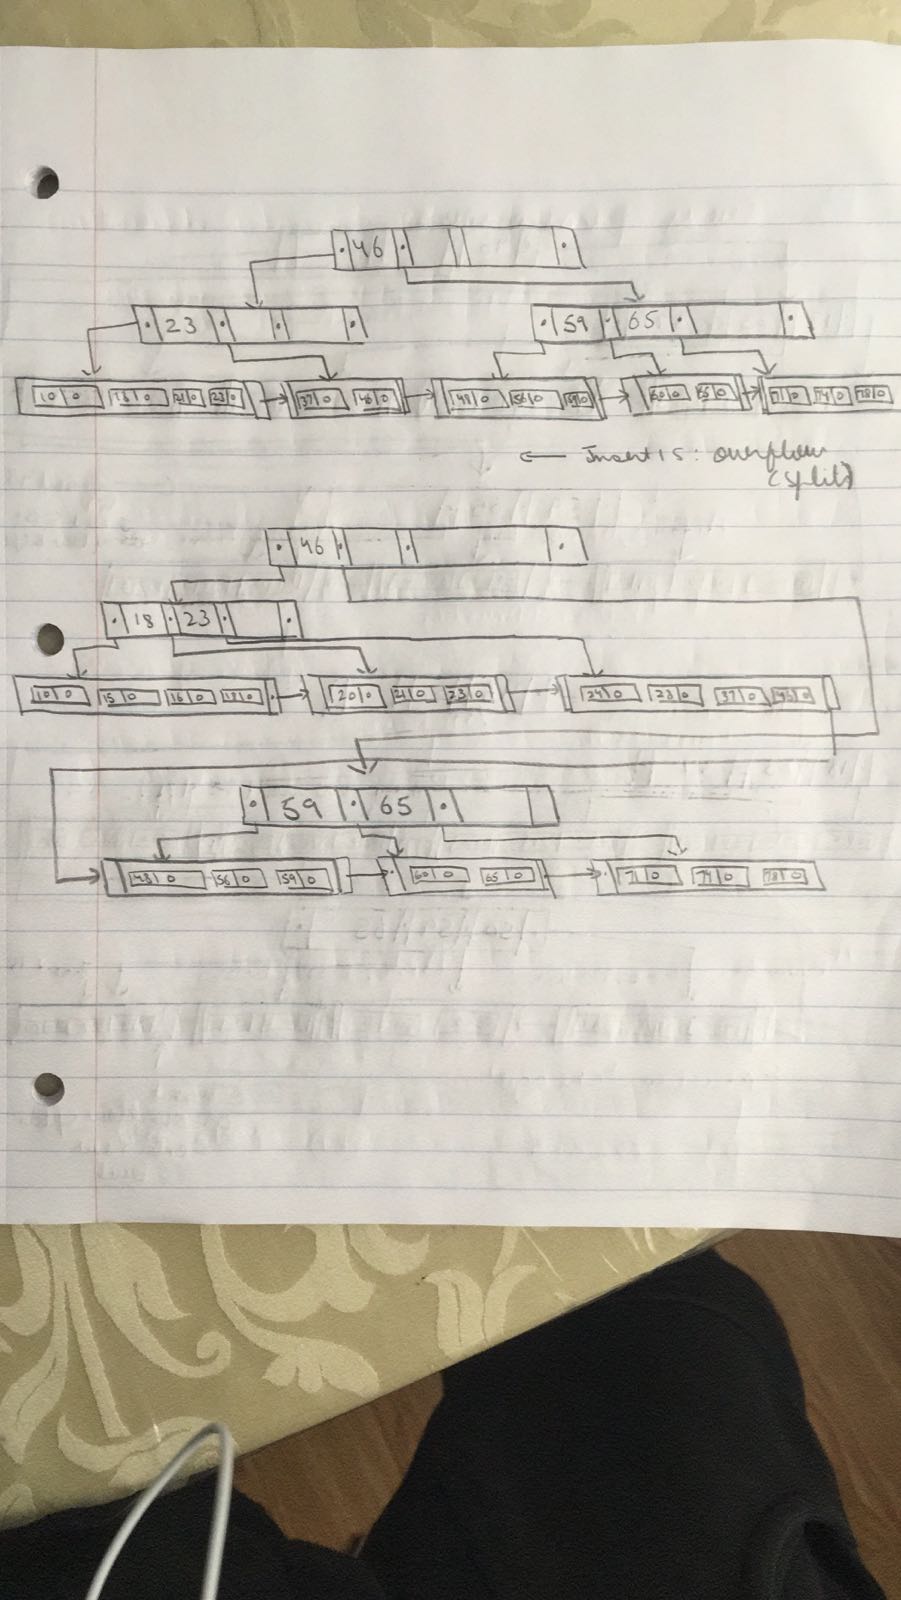 46
23 59 65
10 0 21 0 23 0 37 0 46 0 48 0 56 0 59 0 60 0 65 0 71 0 74 0 78 0
← Insert 15: overflow
(split)
46
18 23
10 0 15 0 16 0 18 0 20 0 21 0 23 0 24 0 23 0 37 0 46 0
59 65
48 0 56 0 59 0 60 0 65 0 71 0 74 0 78 0